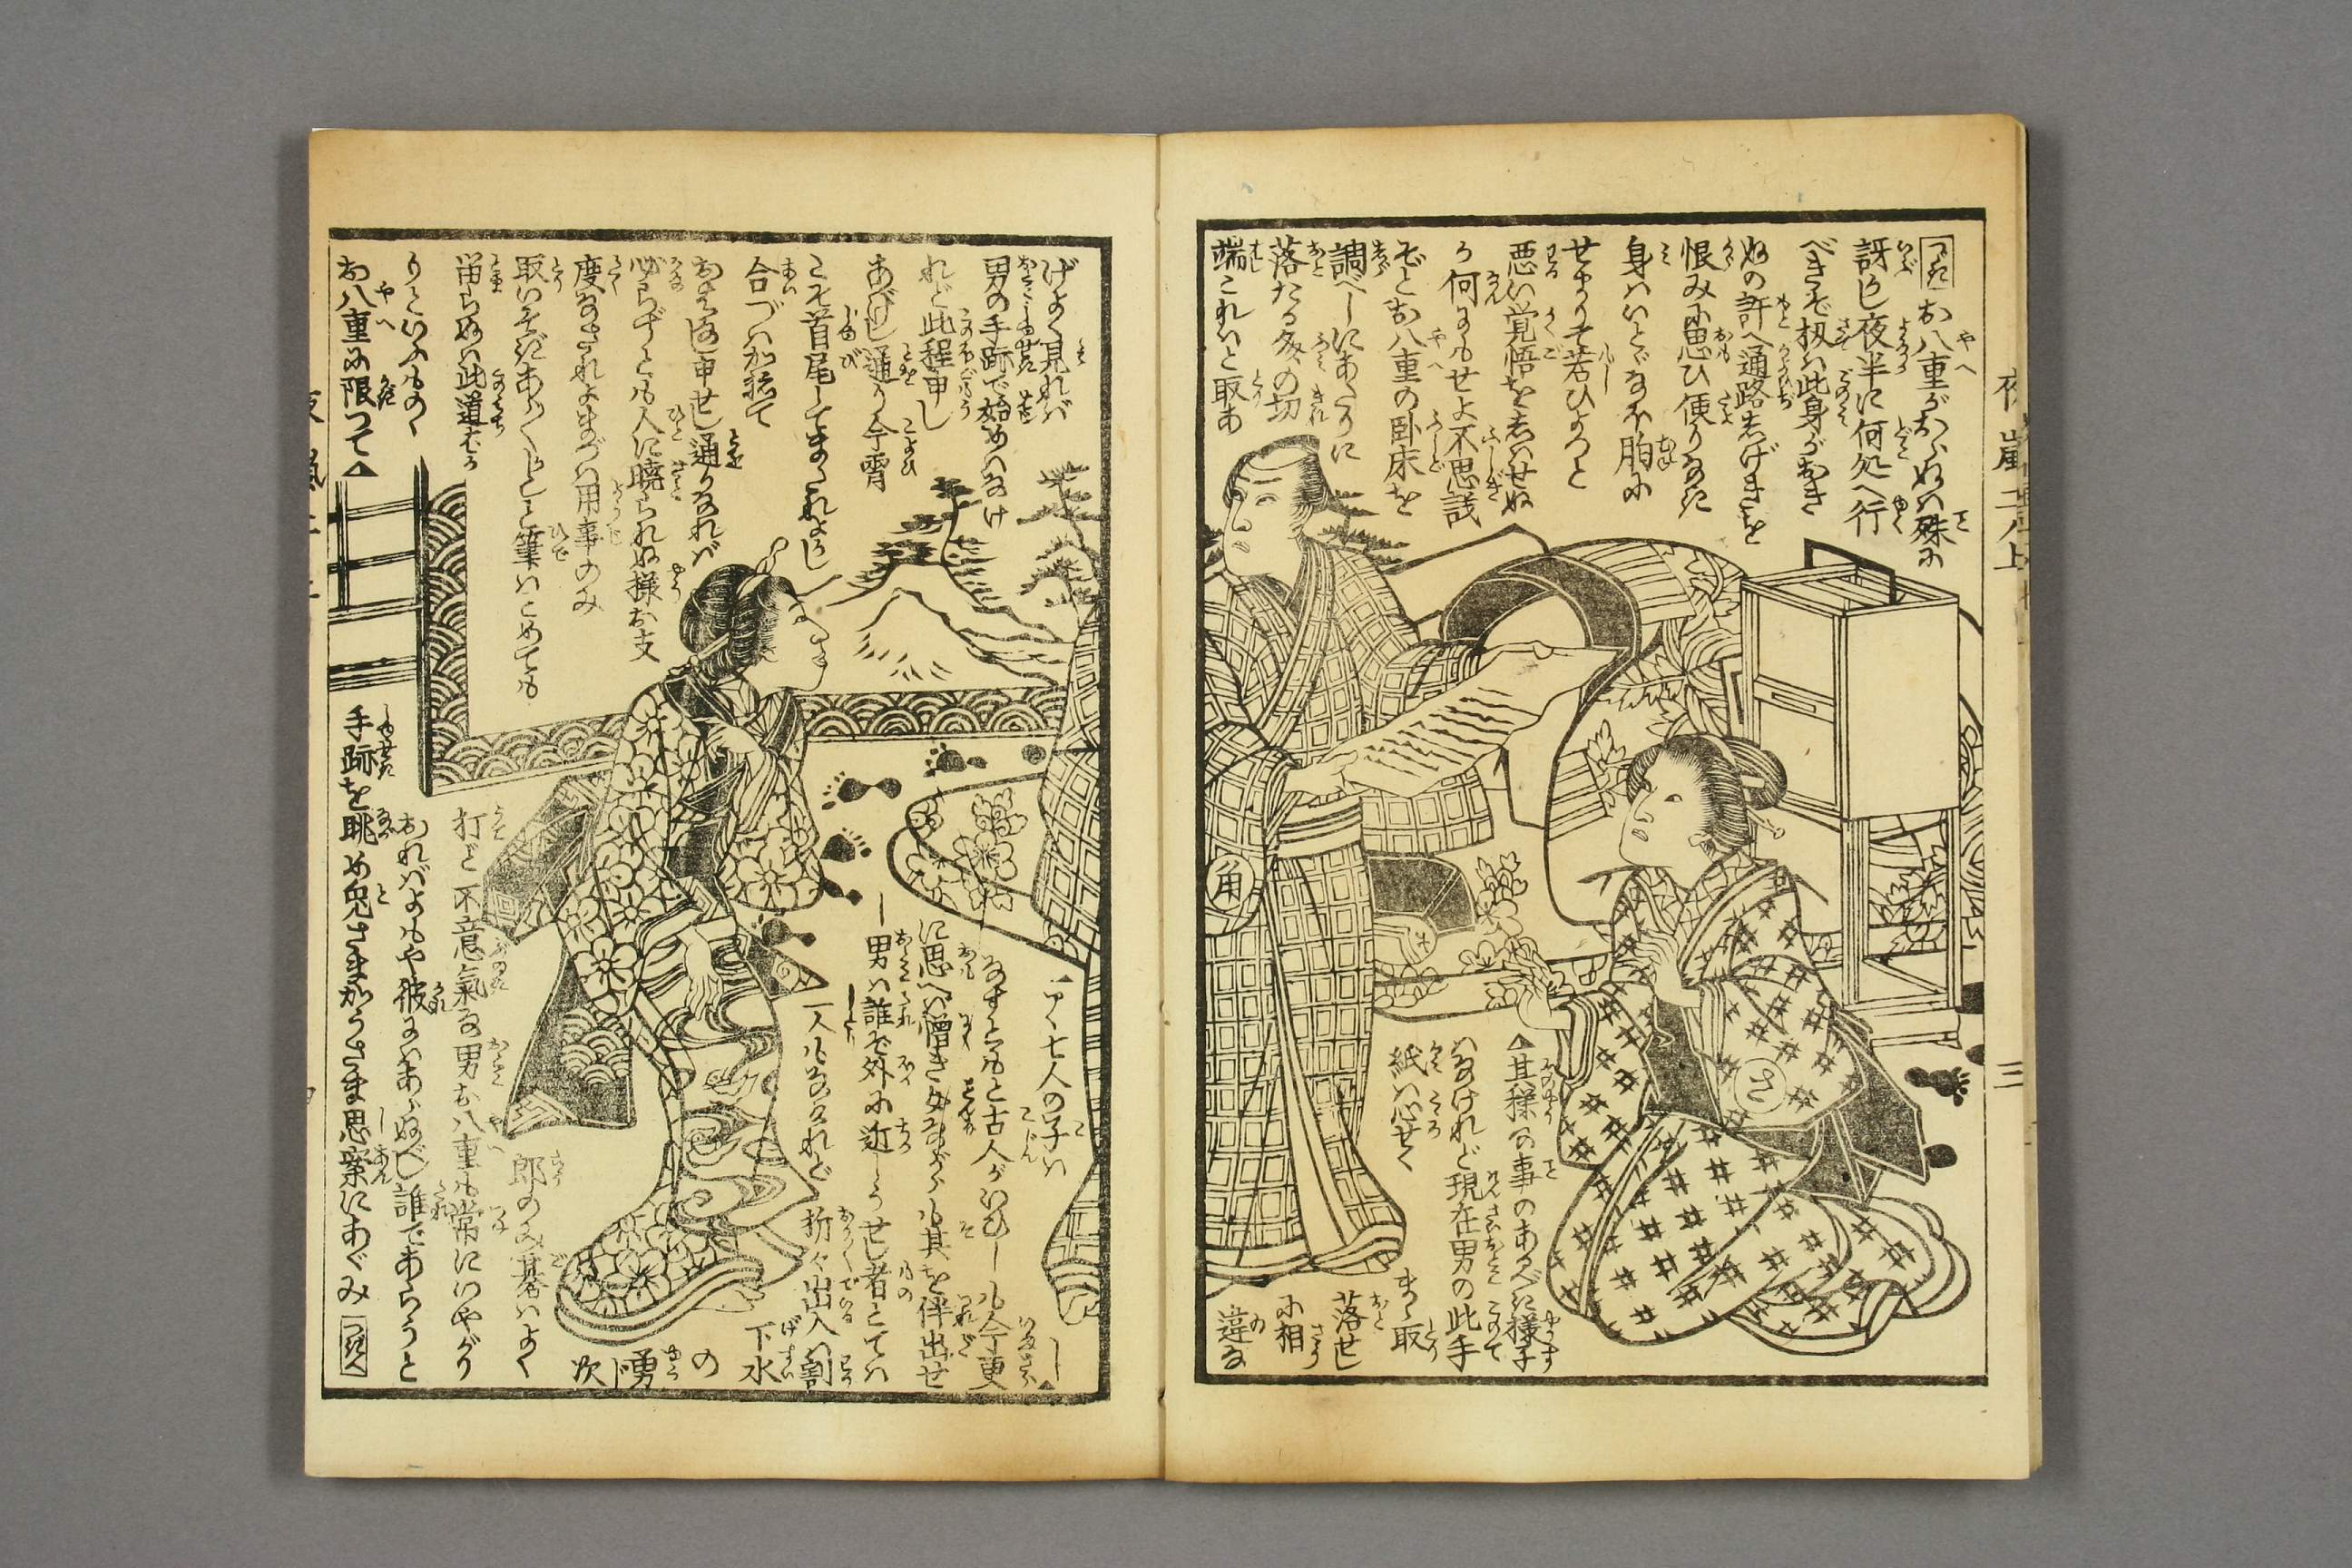 つゞき お八重がおらぬハ殊に
訝かし夜半に何処へ行
べきぞ扨ハ此身がおき
ぬの許へ通路しげきを
恨みに思ひ便りなき
身ハいとゞなほ胸に
せまりそ若ひよつと
悪い覚悟を
何にもせよ不思議
ぞとお八重の卧床を
調べしにあたりに
落たる文の切
端これハと取あ
▲其様な事のあるべき様子
ハなけれど現在男の此手
紙ハ心せく
まゝ取
落せし
に相
違な
げよく見れバ
男の手跡で始めハなけ
れど此程申し
あげし通り今宵
こそ首尾してまたれよかし
合づハかねて
申せし通りなれバ
必らずとも人に暁られぬ様お支
度なされよまづハ用事のみ
取いそぎあらかしこと筆ハとめても
留らぬハ此道ばか
りといふものゝ
お八重に限つて▲
七人の子ハ
なすとものと古人がいひしも今更
に思へバ憎き女ながらも其を伴出せ
し男ハ誰ぞ外に近しうせし者とてハ
一人もなけれど
折々出入の割
下水
の
勇
次
郎のみ碁ハよく
打ど不意氣な男お八重も常にいやがり
おれバよもや彼にハあらぬべし誰であらうと
手跡を眺め兎さまかうさま思案にあぐみ つぎへ
夜嵐二ノ上
三
角